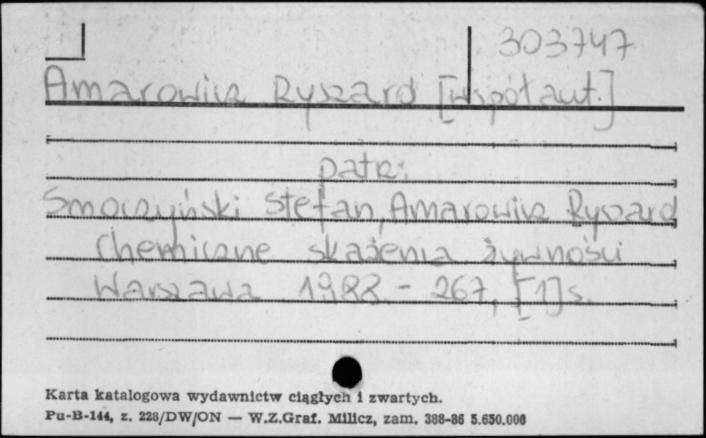 303747
Amarowicz Ryszard [współaut.]
patrz:
Smoczyński Stefan, Amarowicz Ryszard
Chemiczne skażenia żywności
Warszawa 1988. - 267, [1] s.
Karta katalogowa wydawnictw ciągłych i zwartych.
Pu-B-144, z. 228/DW/ON — W.Z.Graf. Milicz, zam. 388-86 5.650.000